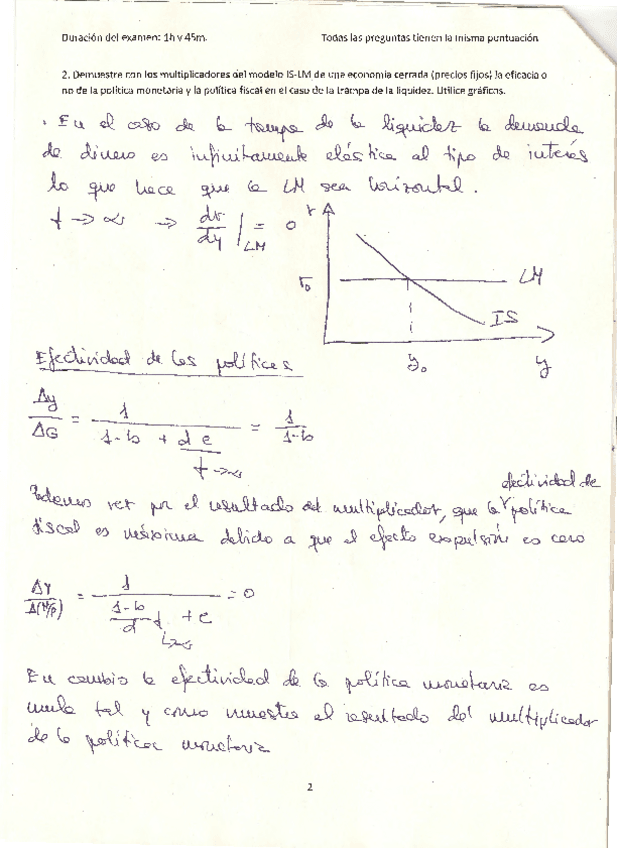 Duración del examen: 1h y 45m. Todas las preguntas tienen la misma puntuación
2. Demuestre con los multiplicadores del modelo IS-LM de una economía cerrada (precios fijos) la eficacia o
no de la política monetaria y la política fiscal en el caso de la trampa de la liquidez. Utilice gráficos.
. En el caso de la trampa de la liquidez la demanda
de dinero es infinitamente elástica al tipo de interés
lo que hace que la LM sea horizontal.
f → ∞ → dr/dy |LM = 0
r
r₀ LM
IS
y₀ y
Efectividad de las políticas
Δy/ΔG = 1/(1-b + d e/f→∞) = 1/(1-b)
Podemos ver por el resultado del multiplicador, que la efectividad de política
fiscal es máxima debido a que el efecto expulsión es cero
ΔY/Δ(M/p) = 1/((1-b)/d f + e) = 0
↳∞
En cambio la efectividad de la política monetaria es
nula tal y como muestra el resultado del multiplicador
de la política monetaria
2